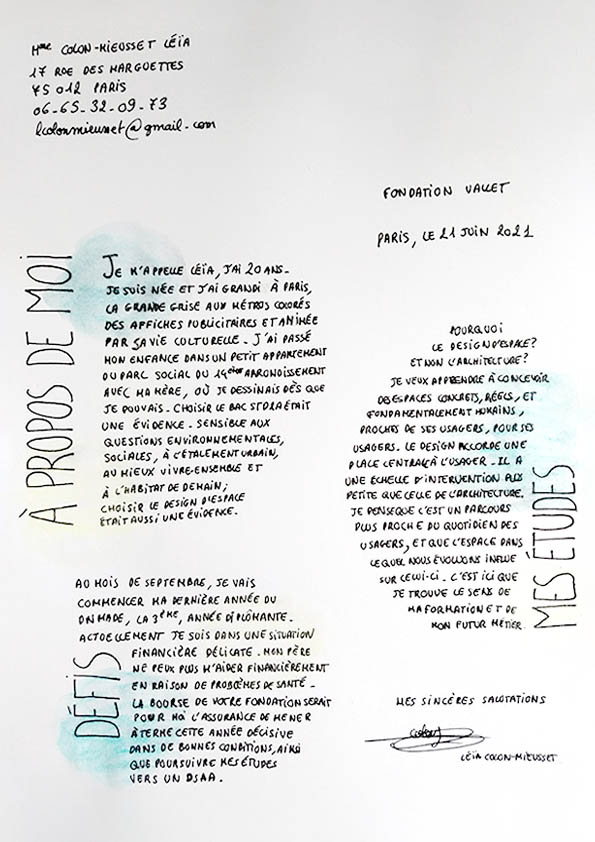 Mme COLON-MIEUSSET LÉÏA
17 RUE DES MARGUETTES
75 012 PARIS
06-65-32-09-73
lcolonmieusset@gmail.com
FONDATION VALLET
PARIS, LE 21 JUIN 2021
À PROPOS DE MOI
JE M'APPELLE LÉÏA, J'AI 20 ANS.
JE SUIS NÉE ET J'AI GRANDI À PARIS,
LA GRANDE GRISE AUX MÉTROS COLORÉS
DES AFFICHES PUBLICITAIRES ET ANIMÉE
PAR SA VIE CULTURELLE. J'AI PASSÉ
MON ENFANCE DANS UN PETIT APPARTEMENT
DU PARC SOCIAL DU 19ème ARRONDISSEMENT
AVEC MA MÈRE, OÙ JE DESSINAIS DÈS QUE
JE POUVAIS. CHOISIR LE BAC STD2A ÉTAIT
UNE ÉVIDENCE. SENSIBLE AUX
QUESTIONS ENVIRONNEMENTALES,
SOCIALES, À L'ÉTALEMENT URBAIN,
AU MIEUX VIVRE-ENSEMBLE ET
À L'HABITAT DE DEMAIN;
CHOISIR LE DESIGN D'ESPACE
ÉTAIT AUSSI UNE ÉVIDENCE.
MES ÉTUDES
POURQUOI
LE DESIGN D'ESPACE?
ET NON L'ARCHITECTURE?
JE VEUX APPRENDRE À CONCEVOIR
DES ESPACES CONCRETS, RÉELS, ET
FONDAMENTALEMENT HUMAINS,
PROCHES DE SES USAGERS, POUR SES
USAGERS. LE DESIGN ACCORDE UNE
PLACE CENTRALE À L'USAGER. IL A
UNE ÉCHELLE D'INTERVENTION PLUS
PETITE QUE CELLE DE L'ARCHITECTURE.
JE PENSE QUE C'EST UN PARCOURS
PLUS PROCHE DU QUOTIDIEN DES
USAGERS, ET QUE L'ESPACE DANS
LEQUEL NOUS ÉVOLUONS INFLUE
SUR CELUI-CI. C'EST ICI QUE
JE TROUVE LE SENS DE
MA FORMATION ET DE
MON FUTUR MÉTIER.
DÉFIS
AU MOIS DE SEPTEMBRE, JE VAIS
COMMENCER MA DERNIÈRE ANNÉE DU
DNMADE, LA 3ème, ANNÉE DIPLÔMANTE.
ACTUELLEMENT JE SUIS DANS UNE SITUATION
FINANCIÈRE DÉLICATE. MON PÈRE
NE PEUX PLUS M'AIDER FINANCIÈREMENT
EN RAISON DE PROBLÈMES DE SANTÉ.
LA BOURSE DE VOTRE FONDATION SERAIT
POUR MOI L'ASSURANCE DE MENER
À TERME CETTE ANNÉE DÉCISIVE
DANS DE BONNES CONDITIONS, AINSI
QUE POURSUIVRE MES ÉTUDES
VERS UN DSAA.
MES SINCÈRES SALUTATIONS
LÉÏA COLON-MIEUSSET